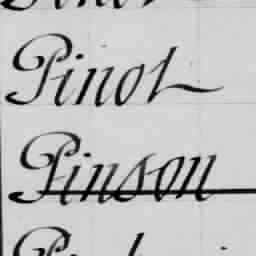 Pinot
Pinson